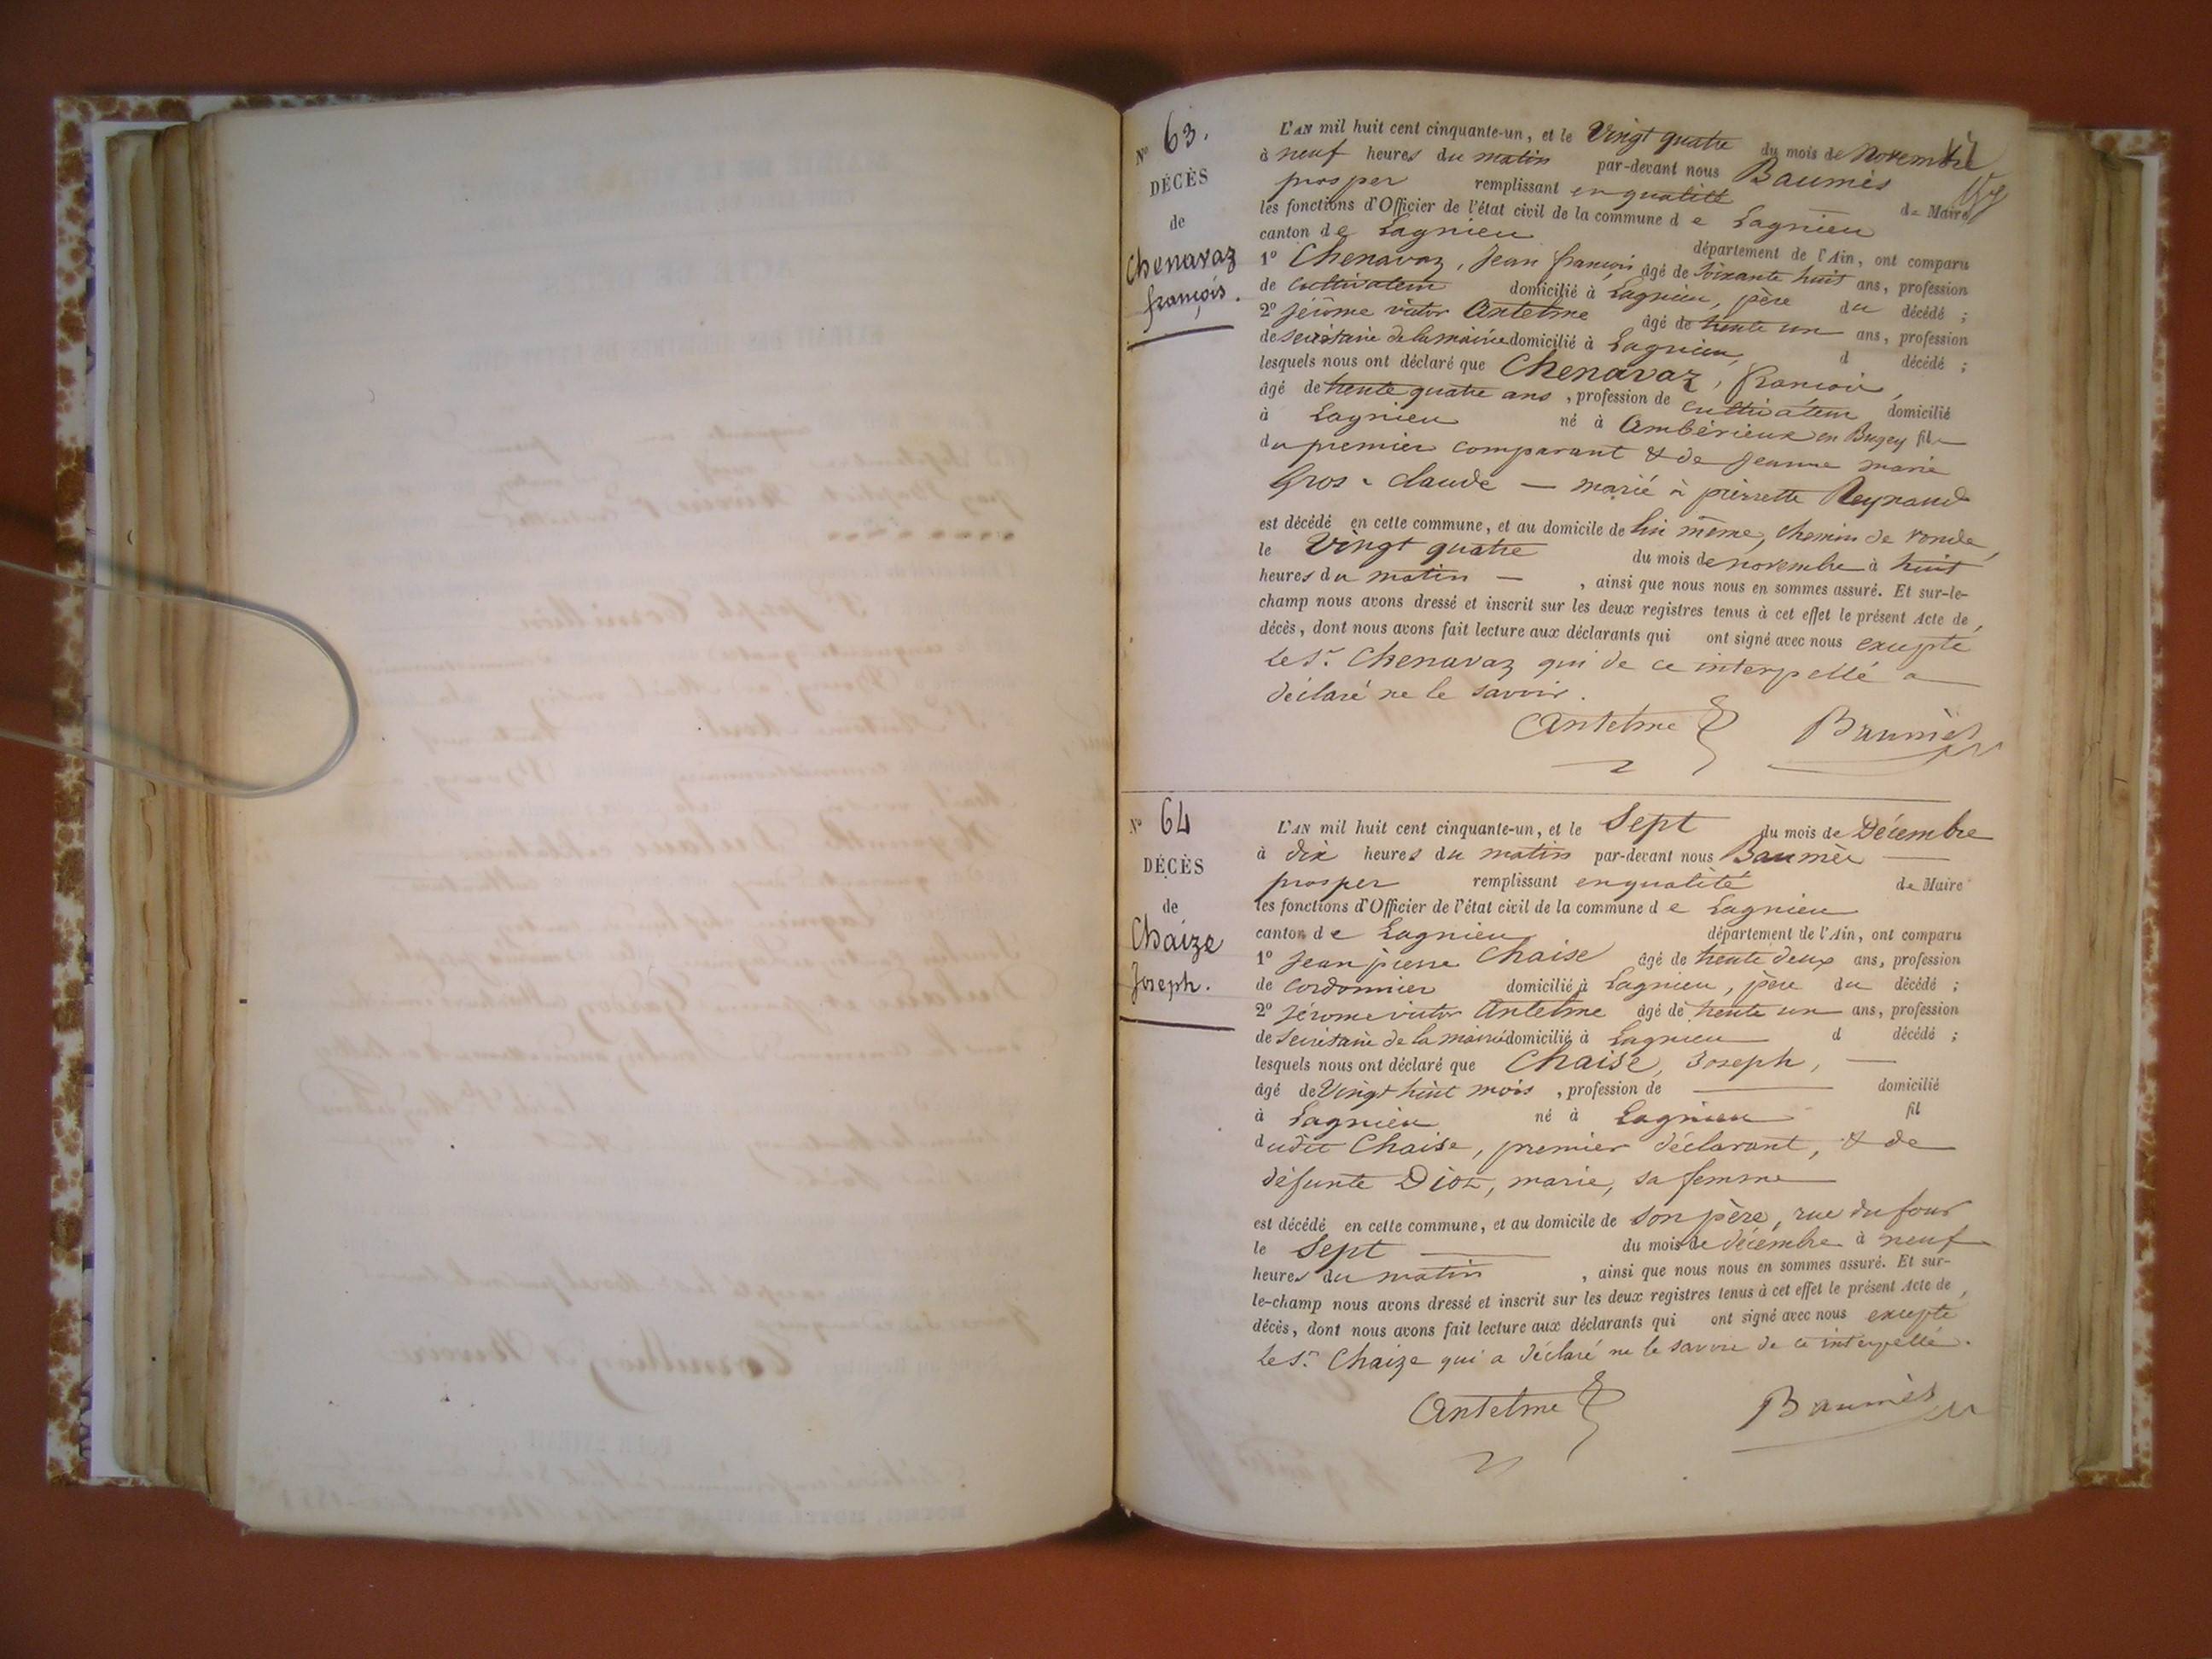 Nº 63.
DÉCÈS
de
Chenavaz
françois.
L'AN mil huit cent cinquante-un, et le Vingt quatre du mois de Novembre
à neuf heures du matin par-devant nous Baumès
prosper remplissant en qualité de Maire
les fonctions d'Officier de l'état civil de la commune de Lagnieu
canton de Lagnieu département de l'Ain, ont comparu
1º Chenavaz, Jean françois âgé de soixante huit ans, profession
de cultivateur domicilié à Lagnieu, père du décédé ;
2º jérôme victor Antelme âgé de trente un ans, profession
de secrétaire de la mairie domicilié à Lagnieu, d décédé ;
lesquels nous ont déclaré que Chenavaz, françois,
âgé de trente quatre ans, profession de cultivateur domicilié
à Lagnieu né à Ambérieux en Bugey fils
du premier comparant & de jeanne marie
Gros-claude — marié à pierrette Reynaud
est décédé en cette commune, et au domicile de lui même, chemin de ronde,
le Vingt quatre du mois de novembre à huit
heures du matin — , ainsi que nous nous en sommes assuré. Et sur-le-
champ nous avons dressé et inscrit sur les deux registres tenus à cet effet le présent Acte de
décès, dont nous avons fait lecture aux déclarants qui ont signé avec nous excepté
le Sr. Chenavaz qui de ce interpellé a
déclaré ne le savoir.
Antelme Baumès
Nº 64
DÉCÈS
de
Chaize
Joseph.
L'AN mil huit cent cinquante-un, et le Sept du mois de Décembre
à dix heures du matin par-devant nous Baumès —
prosper remplissant en qualité de Maire
les fonctions d'Officier de l'état civil de la commune de Lagnieu
canton de Lagnieu département de l'Ain, ont comparu
1º Jean pierre Chaise âgé de trente deux ans, profession
de cordonnier domicilié à Lagnieu, père du décédé ;
2º jérome victor Antelme âgé de trente un ans, profession
de secrétaire de la mairie domicilié à Lagnieu d décédé ;
lesquels nous ont déclaré que Chaise, Joseph, —
âgé de Vingt huit mois, profession de — domicilié
à Lagnieu né à Lagnieu fil
dudit Chaise, premier déclarant, & de
défunte Dioz, marie, sa femme
est décédé en cette commune, et au domicile de son père, rue du four
le Sept — du mois de décembre à neuf
heures du matin , ainsi que nous nous en sommes assuré. Et sur-
le-champ nous avons dressé et inscrit sur les deux registres tenus à cet effet le présent Acte de
décès, dont nous avons fait lecture aux déclarants qui ont signé avec nous excepté
le Sr. Chaize qui a déclaré ne le savoir de ce interpellé.
Antelme Baumès